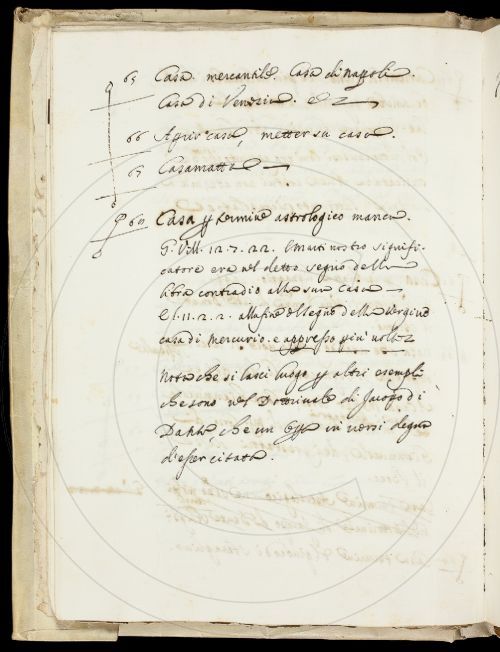 65 Casa mercantile. Casa di Nappoli.
Casa di Venezia. e
66 Aprir casa, metter su casa.
67 Casamatta
60 Casa p termine astrologico manca.
G. Vill. 12. 7. 22. e Marti nostro signifi-
catore era nel detto segno della
libra contradio alla sua casa
E l. 11. 2. 2. alla fine del segno della Vergine
casa di Mercurio. e appresso più volte
Nota che si lasci luogo p altri esempli
che sono nel Dottrinale di Jacopo di
Dante, che un in versi degno
d'esser citato.